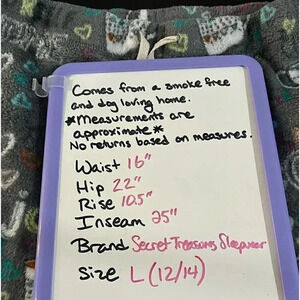 Comes from a smoke free
and dog loving home.
*Measurements are
approximate*
No returns based on measures.
Waist 16"
Hip 22"
Rise 10.5"
Inseam 25"
Brand Secret Treasures Sleepwear
Size L (12/14)